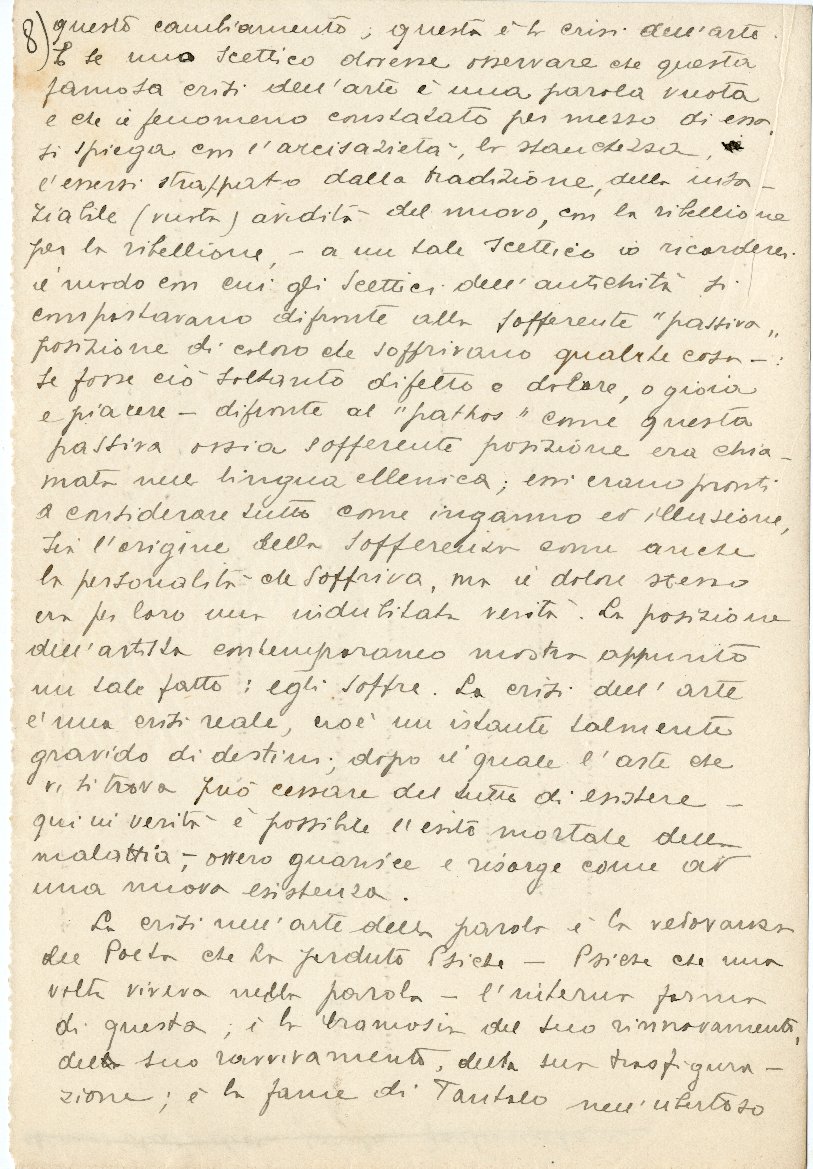 8) questo cambiamento; questa è la crisi dell'arte.
E se uno scettico dovesse osservare che questa
famosa crisi dell'arte è una parola vuota
e che il fenomeno constatato per mezzo di essa
si spiega con l'arcisazietà, la stanchezza,
l'essersi strappato dalla tradizione, della insa-
ziabile (vuota) avidità del nuovo, con la ribellione
per la ribellione, - a un tale scettico io ricorderei
il modo con cui gli Scettici dell'antichità si
comportavano difronte alla sofferente "passiva"
posizione di coloro che soffrivano qualche cosa - :
se fosse ciò soltanto difetto e dolore, o gioia
e piacere - difronte al "pathos" come questa
passiva ossia sofferente posizione era chia-
mata nell lingua ellenica; essi erano pronti
a considerare tutto come inganno ed illusione,
sia l'origine della sofferenza come anche
la personalità che soffriva, ma il dolore stesso
era per loro una indubitata verità. La posizione
dell'artista contemporaneo mostra appunto
un tale fatto: egli soffre. La crisi dell'arte
è una crisi reale, cioè un istante talmente
gravido di destini, dopo il quale l'arte che
vi si trova può cessare del tutto di esistere -
qui in verità è possibile l'esito mortale della
malattia -, ovvero guarisce e risorge come ad
una nuova esistenza.
La crisi nell'arte della parola è la vedovanza
del Poeta che ha perduto Psiche - Psiche che una
volta viveva nella parola - l'interna forma
di questa; è la bramosia del suo rinnovamento,
della suo ravvivamento, della sua trasfigura-
zione; è la fame di Tantalo nell'ubertoso